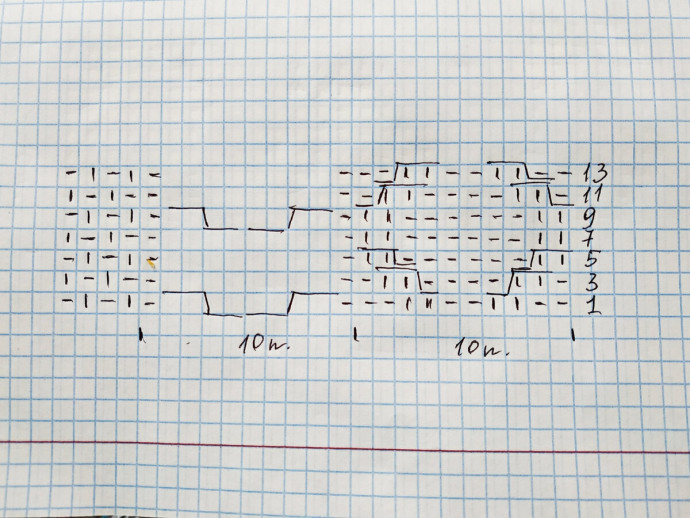 13
11
9
7
5
3
1
10п. 10п.